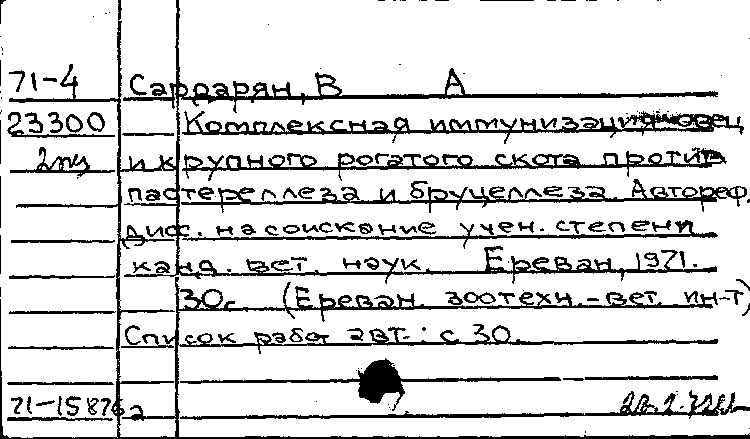 71-4 Сардарян, В А
23300 Комплексная иммунизация овец
2 экз и крупного рогатого скота против
пастереллеза и бруцеллеза. Автореф.
дисс. на соискание учен. степени
канд. вет. наук. Ереван, 1971.
30с. (Ереван. зоотехн.-вет. ин-т)
Список работ авт.: с 30.
71-15876а